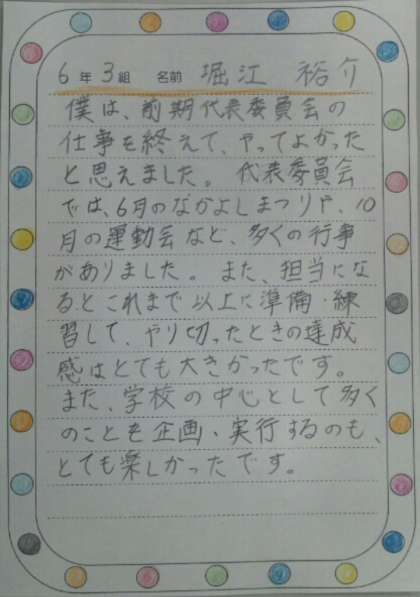 6年3組 名前 堀江 裕介
僕は、前期代表委員会の
仕事を終えて、やってよかった
と思えました。代表委員会
では、6月のなかよしまつりや、10
月の運動会など、多くの行事
がありました。また、担当にな
るとこれまで以上に準備・練
習して、やり切ったときの達成
感はとても大きかったです。
また、学校の中心として多く
のことを企画・実行するのも、
とても楽しかったです。